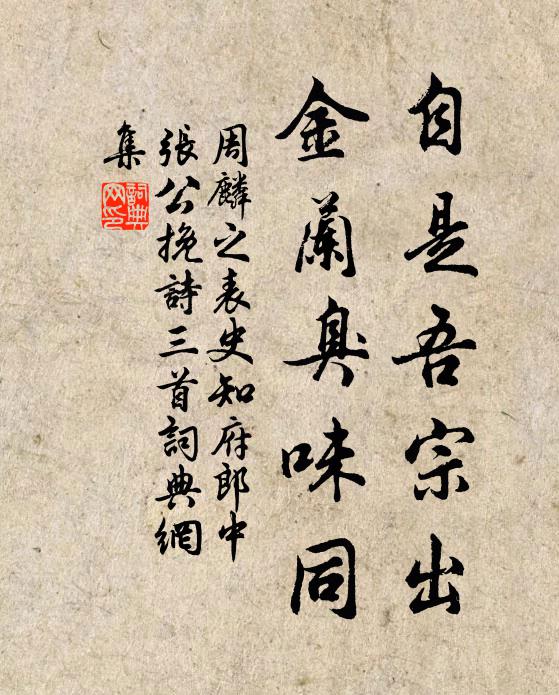 自是吾宗出
金蘭臭味同
周麟之表史知府郎中
張公挽詩三首詞典網
集
詞典網印